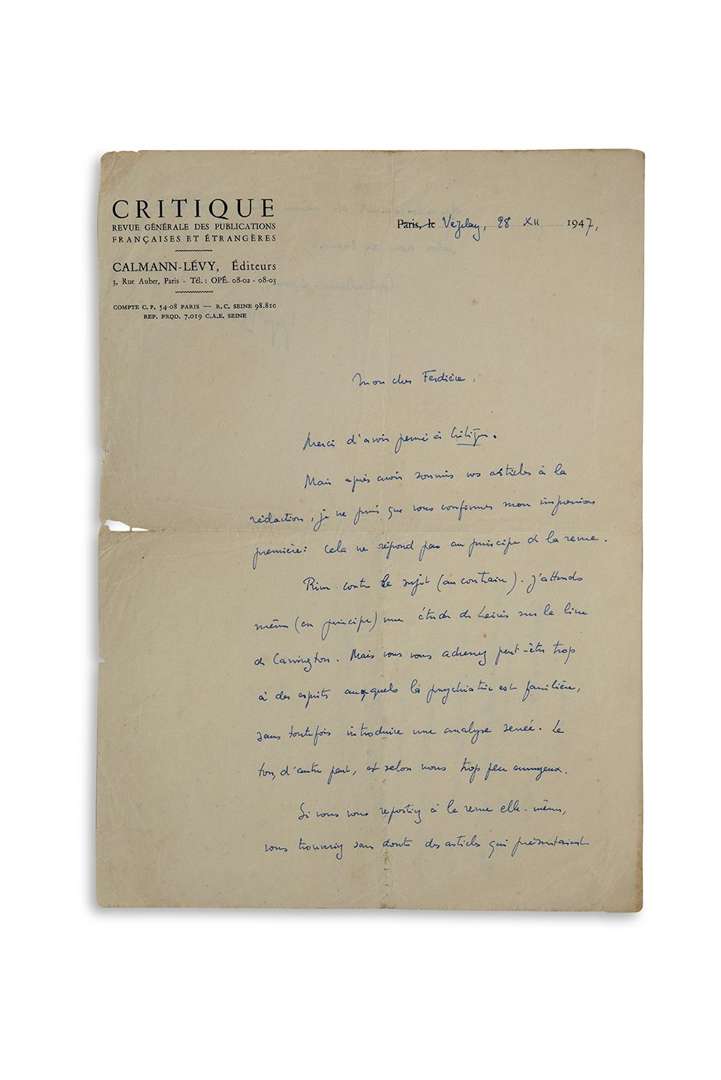 CRITIQUE
REVUE GÉNÉRALE DES PUBLICATIONS
FRANÇAISES ET ÉTRANGÈRES
CALMANN-LÉVY, Éditeurs
3, Rue Auber, Paris - Tél. : OPÉ. 08-02 - 08-03
COMPTE C. P. 54-08 PARIS — R. C. SEINE 98.810
REP. PROD. 7.019 C.A.E. SEINE
Paris, le Vézelay, 28 XII 1947,
Mon cher Ferdière,
Merci d'avoir pensé à Critique.
Mais après avoir soumis vos articles à la
rédaction, je ne puis que vous confirmer mon impression
première : cela ne répond pas au principe de la revue.
Rien contre le sujet (au contraire). J'attends
même (en principe) une étude de Leiris sur le livre
de Carrington. Mais vous vous adressez peut-être trop
à des esprits auxquels la psychiatrie est familière,
sans toutefois introduire une analyse serrée. Le
ton, d'autre part, est selon nous trop peu ennuyeux.
Si vous vous reportiez à la revue elle-même,
vous trouveriez sans doute des articles qui présentaient